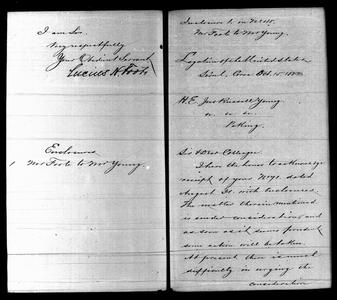 I am Sir
Very respectfully
Your Obedient Servant
Lucius H. Foote
Enclosure
1 Mr Foote to Mr Young.
Inclosure 1. in No.
Mr Foote to Mr Young.
Legation of the United States
Seoul, Corea Oct. 15. 1883
H. E. Jno Russell Young
&c. &c. &c.
Peking.
Sir & Dear Colleague
I have the honor to acknowledge
receipt of your No. dated
August with inclosures.
The matter therein mentioned
is under consideration, and
as soon as it seems prudent
some action will be taken.
At present there is much
difficulty in urging the
consideration